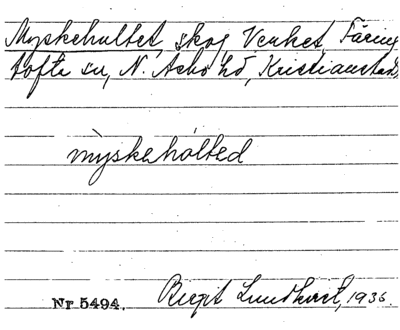 Myskehultet, skog, Venket, Färing
tofta sn, N. Åsbo hd, Kristianstad
myskehòlted
Nr 5494. Birgit Lundkvist, 1936.